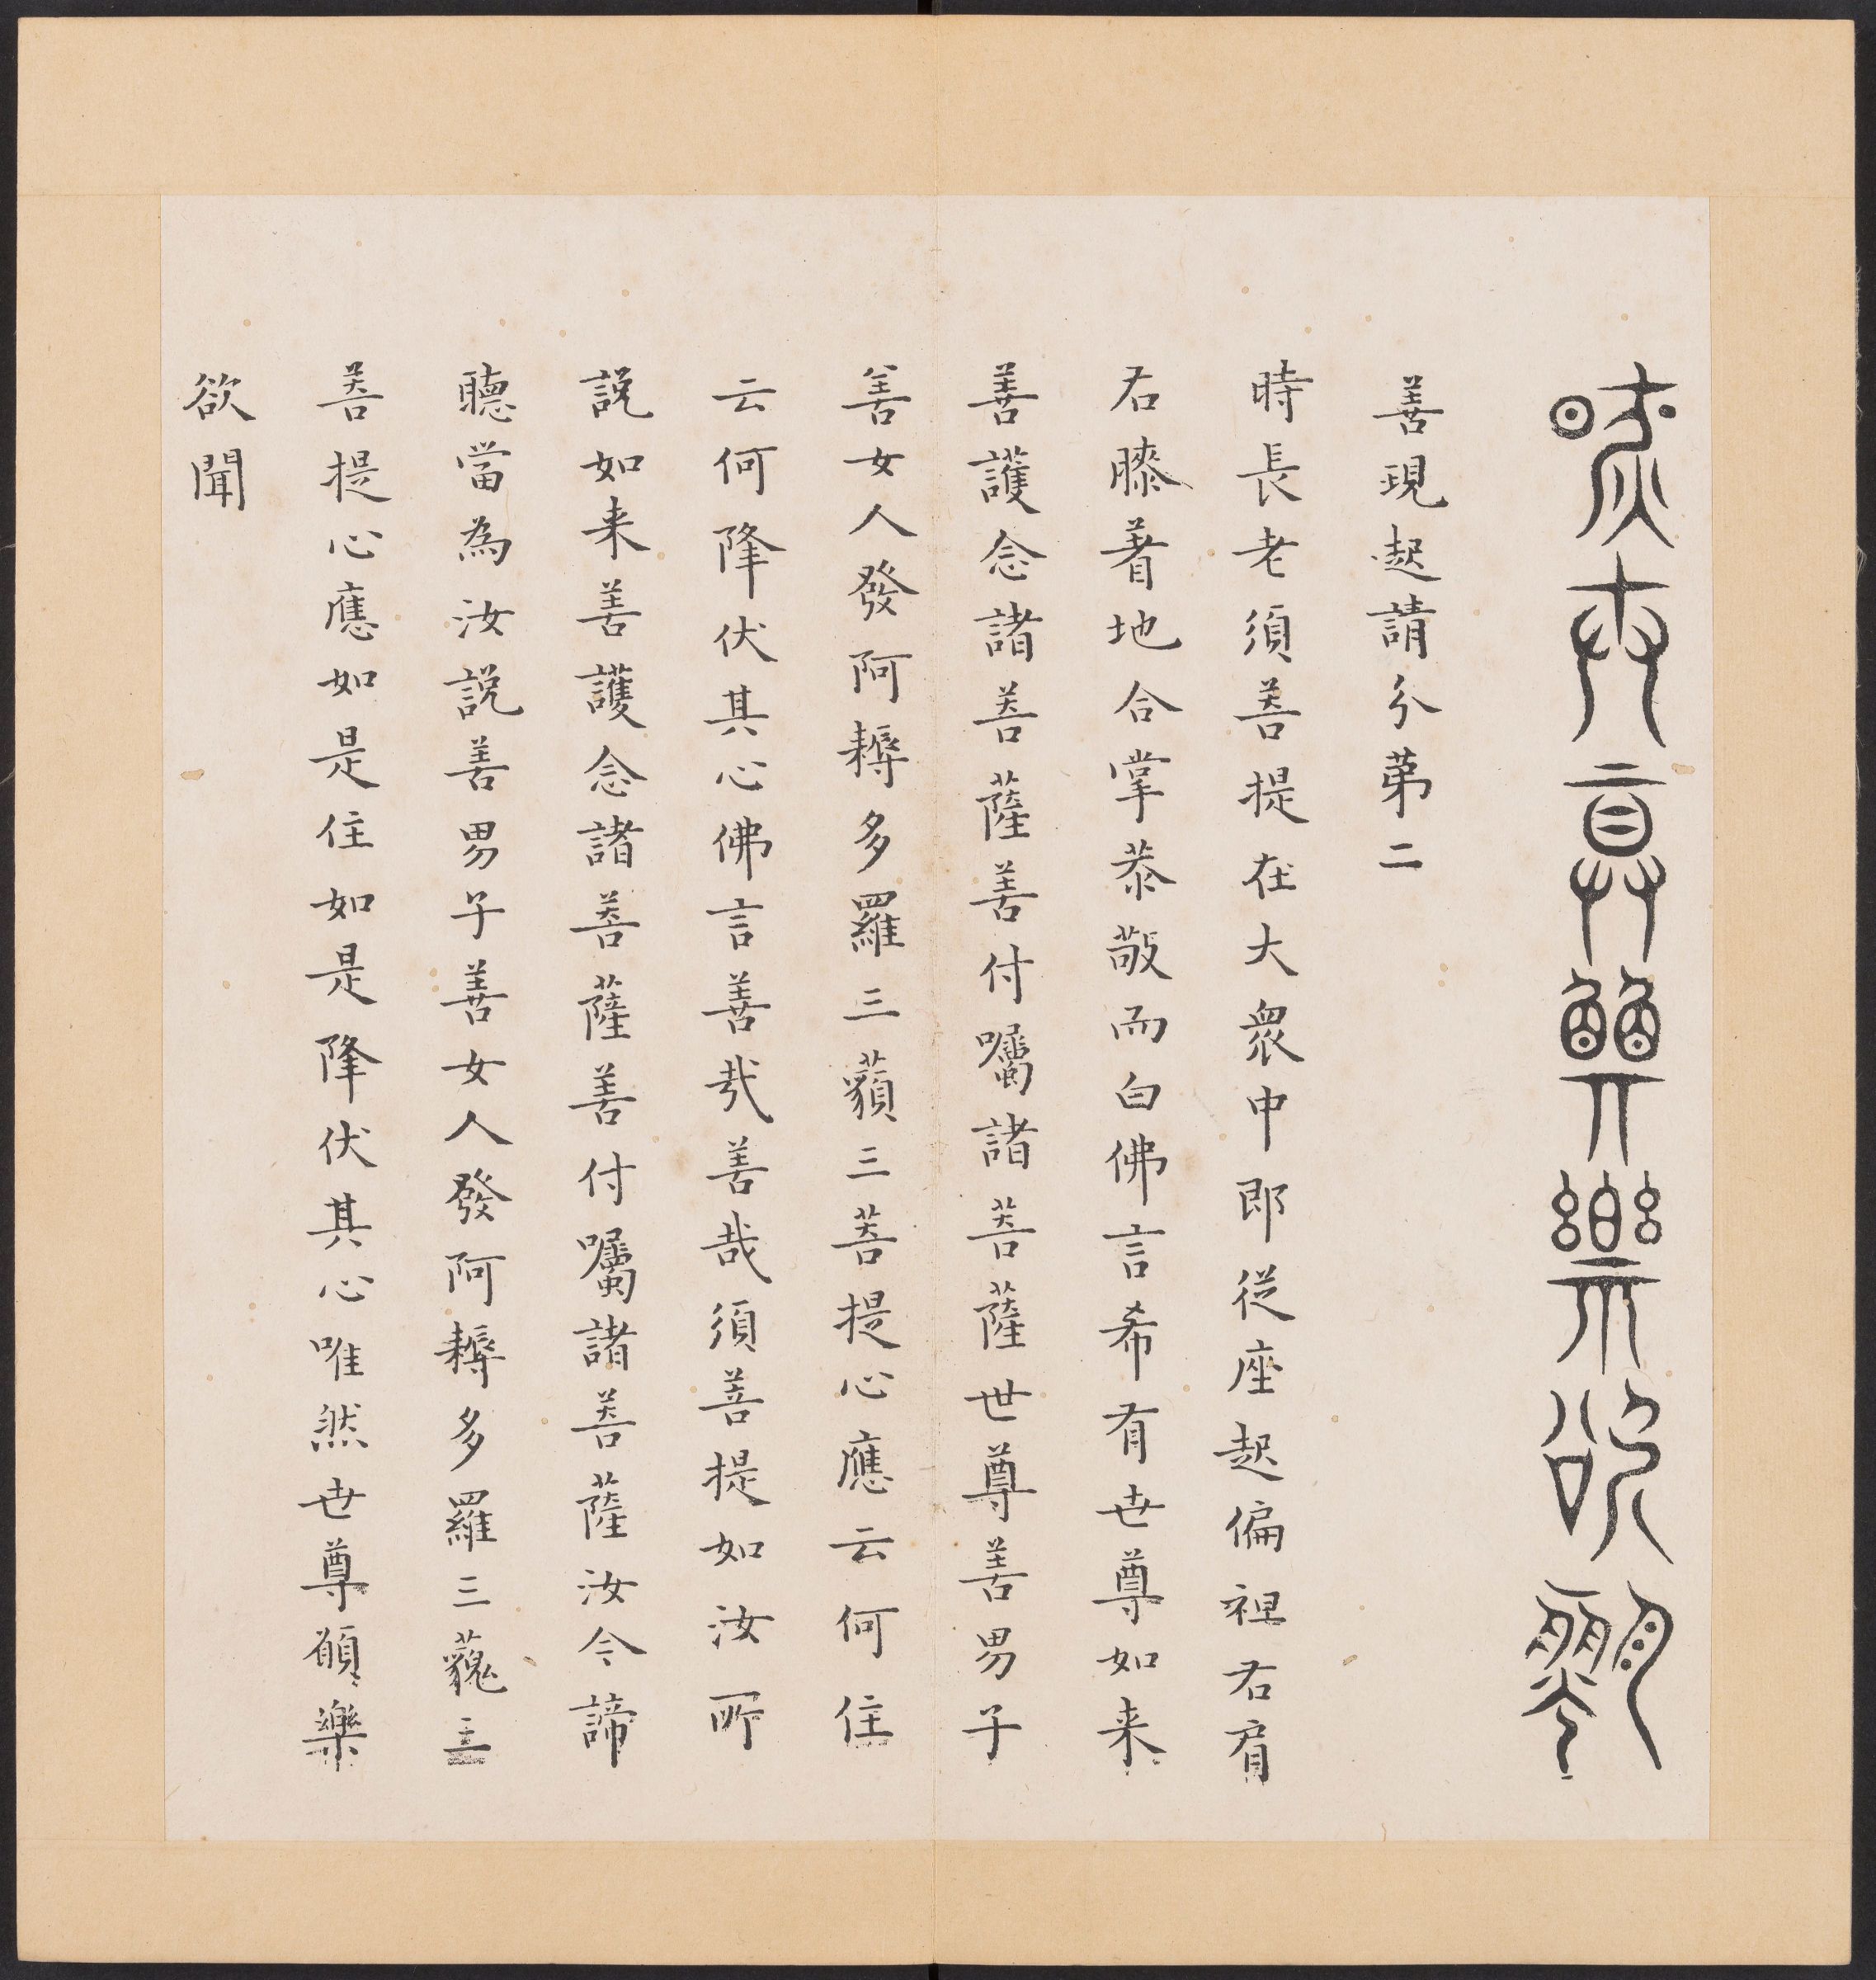 善現起請分第二
時長老須菩提在大衆中即從座起偏袒右肩
右膝著地合掌恭敬而白佛言希有世尊如来
善護念諸菩薩善付囑諸菩薩世尊善男子
善女人發阿耨多羅三藐三菩提心應云何住
云何降伏其心佛言善哉善哉須菩提如汝所
説如来善護念諸菩薩善付囑諸菩薩汝今諦
聽當為汝説善男子善女人發阿耨多羅三藐三
菩提心應如是住如是降伏其心唯然世尊願樂
欲聞